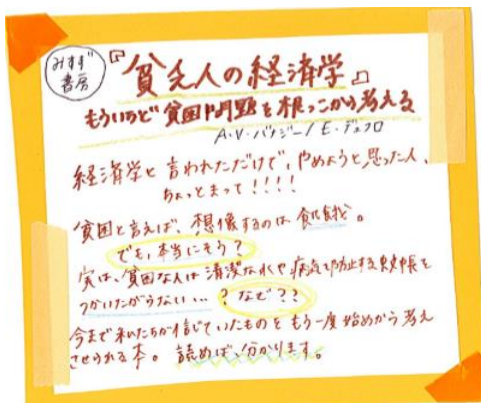 みすず
書房
『貧乏人の経済学』
もういちど貧困問題を根っこから考える
A・V・バナジー/E・デュフロ
経済学と言われただけで、やめようと思った人、
ちょっとまって!!!!
貧困と言えば、想像するのは飢餓。
でも、本当にそう?
実は、貧困な人は清潔な水や病気を防止する蚊帳を
つかいたがらない...?なぜ??
今まで私たちが信じていたものをもう一度始めから考え
させられる本。読めば、分かります。